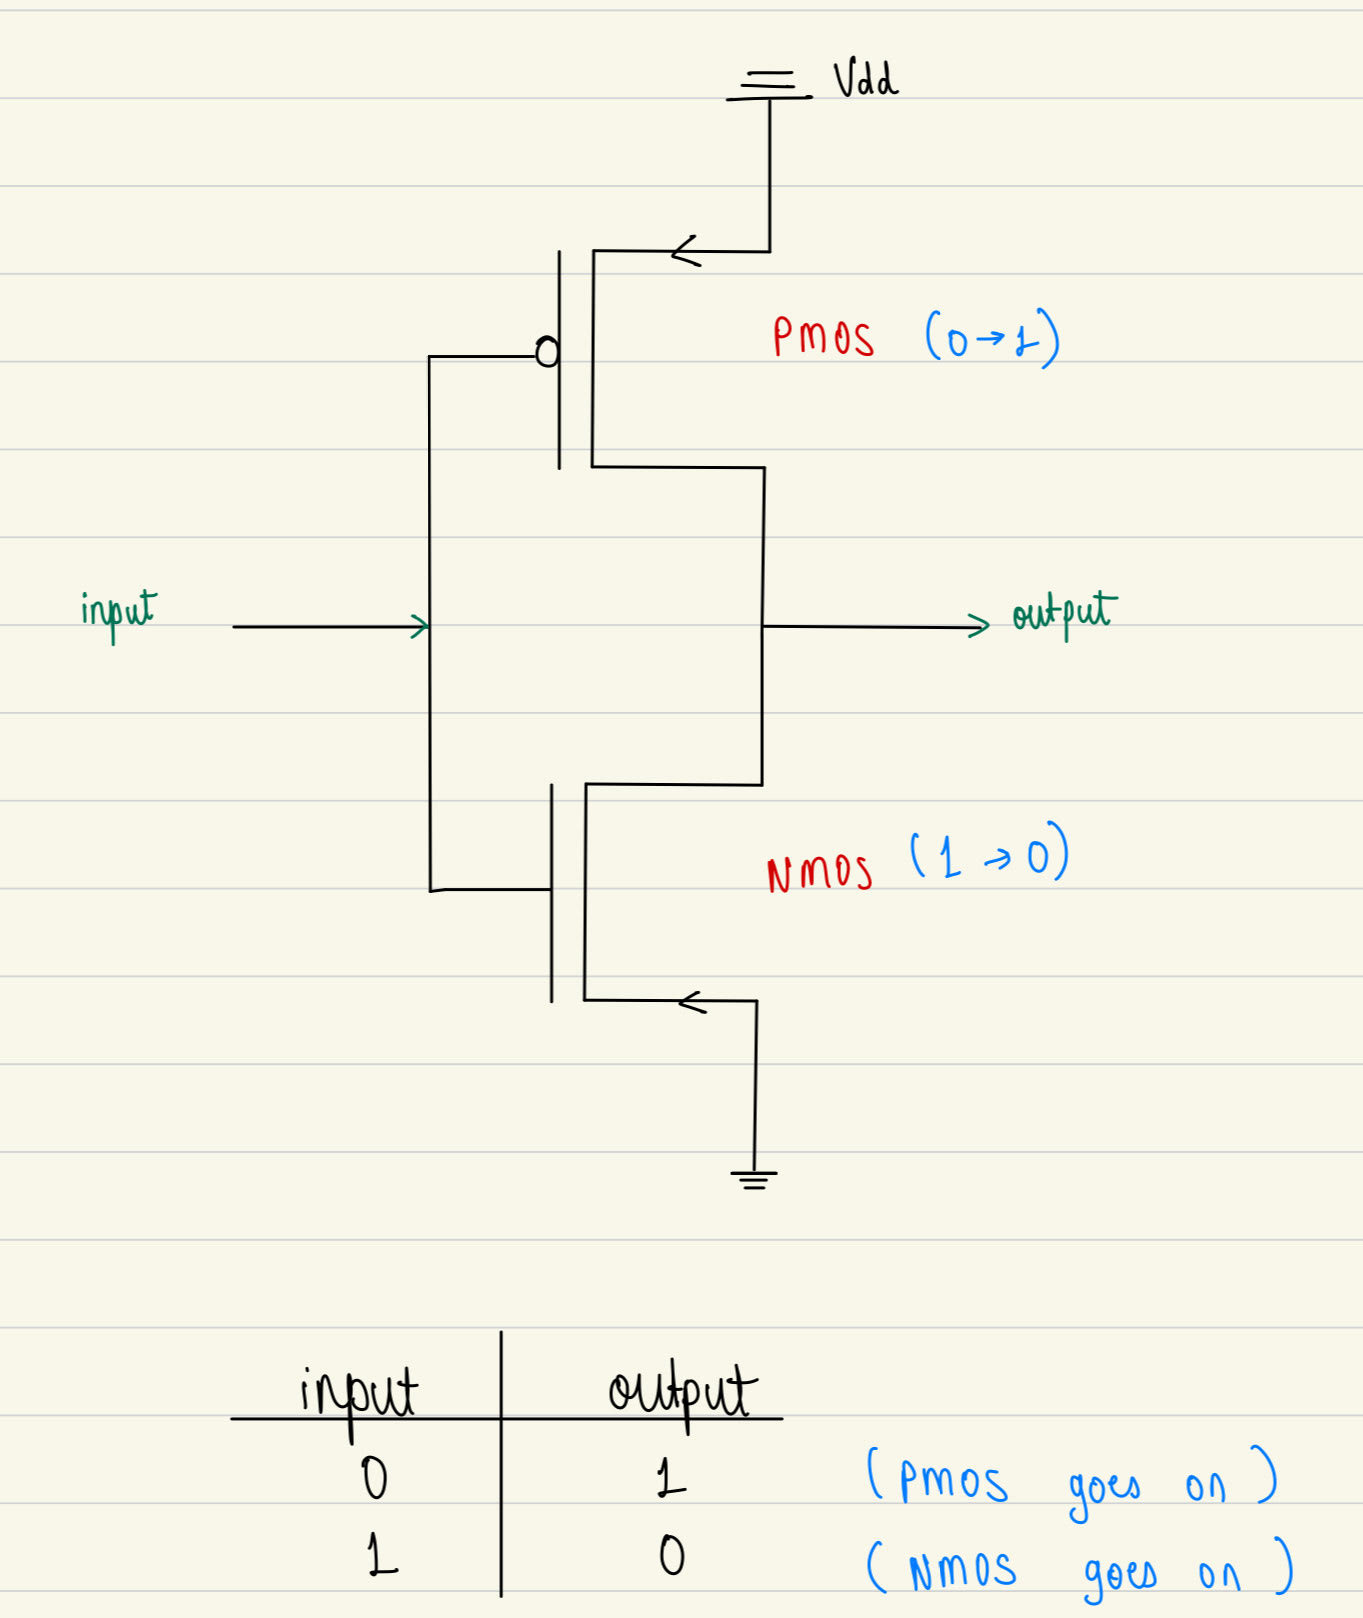 Vdd
PMOS (0→1)
input
output
NMOS (1→0)
input output
0 1 (PMOS goes on)
1 0 (NMOS goes on)